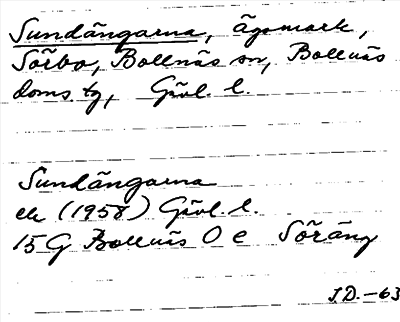 Sundängarna, ägomark,
Sörbo, Bollnäs sn, Bollnäs
doms. tg, Gävl. l.
Sundängarna
ek (1958) Gävl. l.
15G Bollnäs O e Söräng
I.D.-63